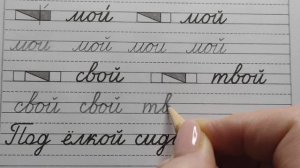 мой мой
мой мой мой мой
свой твой
свой свой тв
Под ёлкой сид